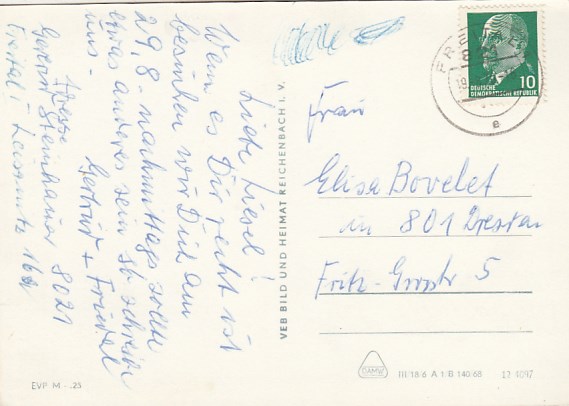 Liebe Liesel!
Wenn es Dir recht ist
besuchen wir Dich am
29.8. nachmittags sollte
etwas anderes sein so schreib
uns.
Gertrud + Friedel
Adresse
Gertrud Steinhauer 8021
Freital
VEB BILD UND HEIMAT REICHENBACH I. V.
DEUTSCHE
DEMOKRATISCHE REPUBLIK
10
FRE
e
Frau
Elisa Bovelet
in 801 Dresden
Fritz-
5
DAMW
III/18/6 A 1/B 140/68
EVP M -.25